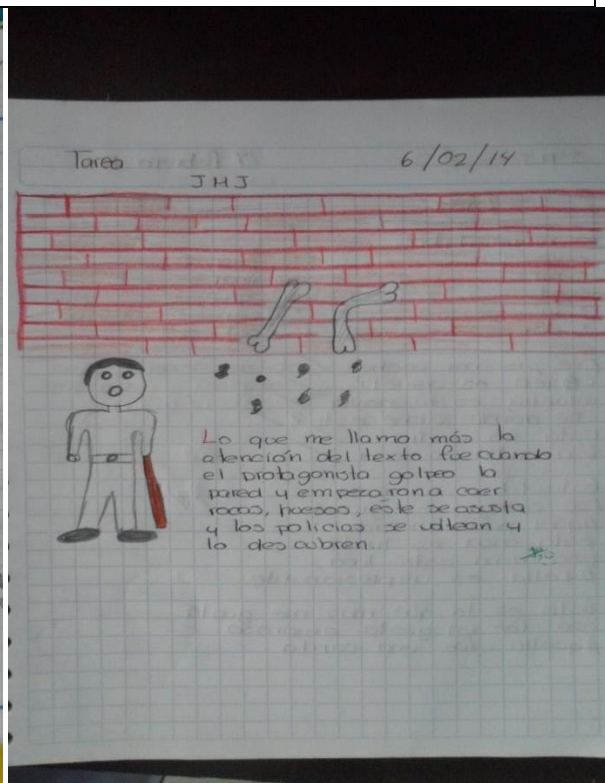 Tarea 6/02/14
JHJ
Lo que me llamo más la
atención del texto fue cuando
el protagonista golpeo la
pared y empezaron a caer
rocas, huesos, este se asusta
y los policias se voltean y
lo descubren.